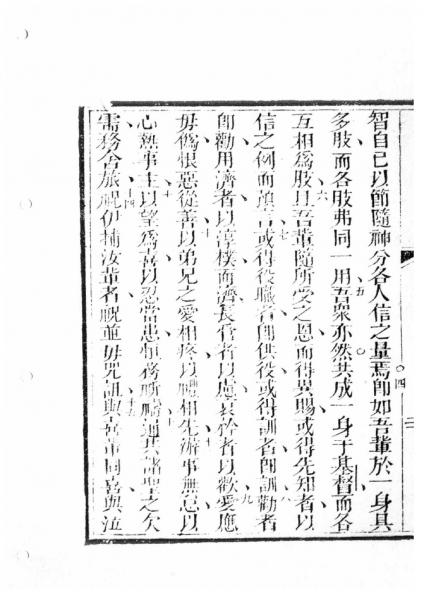 智自已以節隨神分各人信之量焉卽如吾輩於一身具
多肢而各肢弗同一用吾衆亦然共成一身于基督而各
互相爲肢且吾輩隨所受之恩而得異賜或得先知者以
信之例而預言或得役職者卽供役或得訓者卽訓勸者
卽勸用濟者以淳樸而濟長督者以應哀矜者以歡愛應
毋僞恨惡從善以弟兄之愛相疼以禮相先辦事無怠以
心熱事主以望爲喜以忍當患恒務祈禱通共諸聖之欠
需務舍旅祝伊捕汝輩者祝並毋咒詛與喜軰同喜與泣